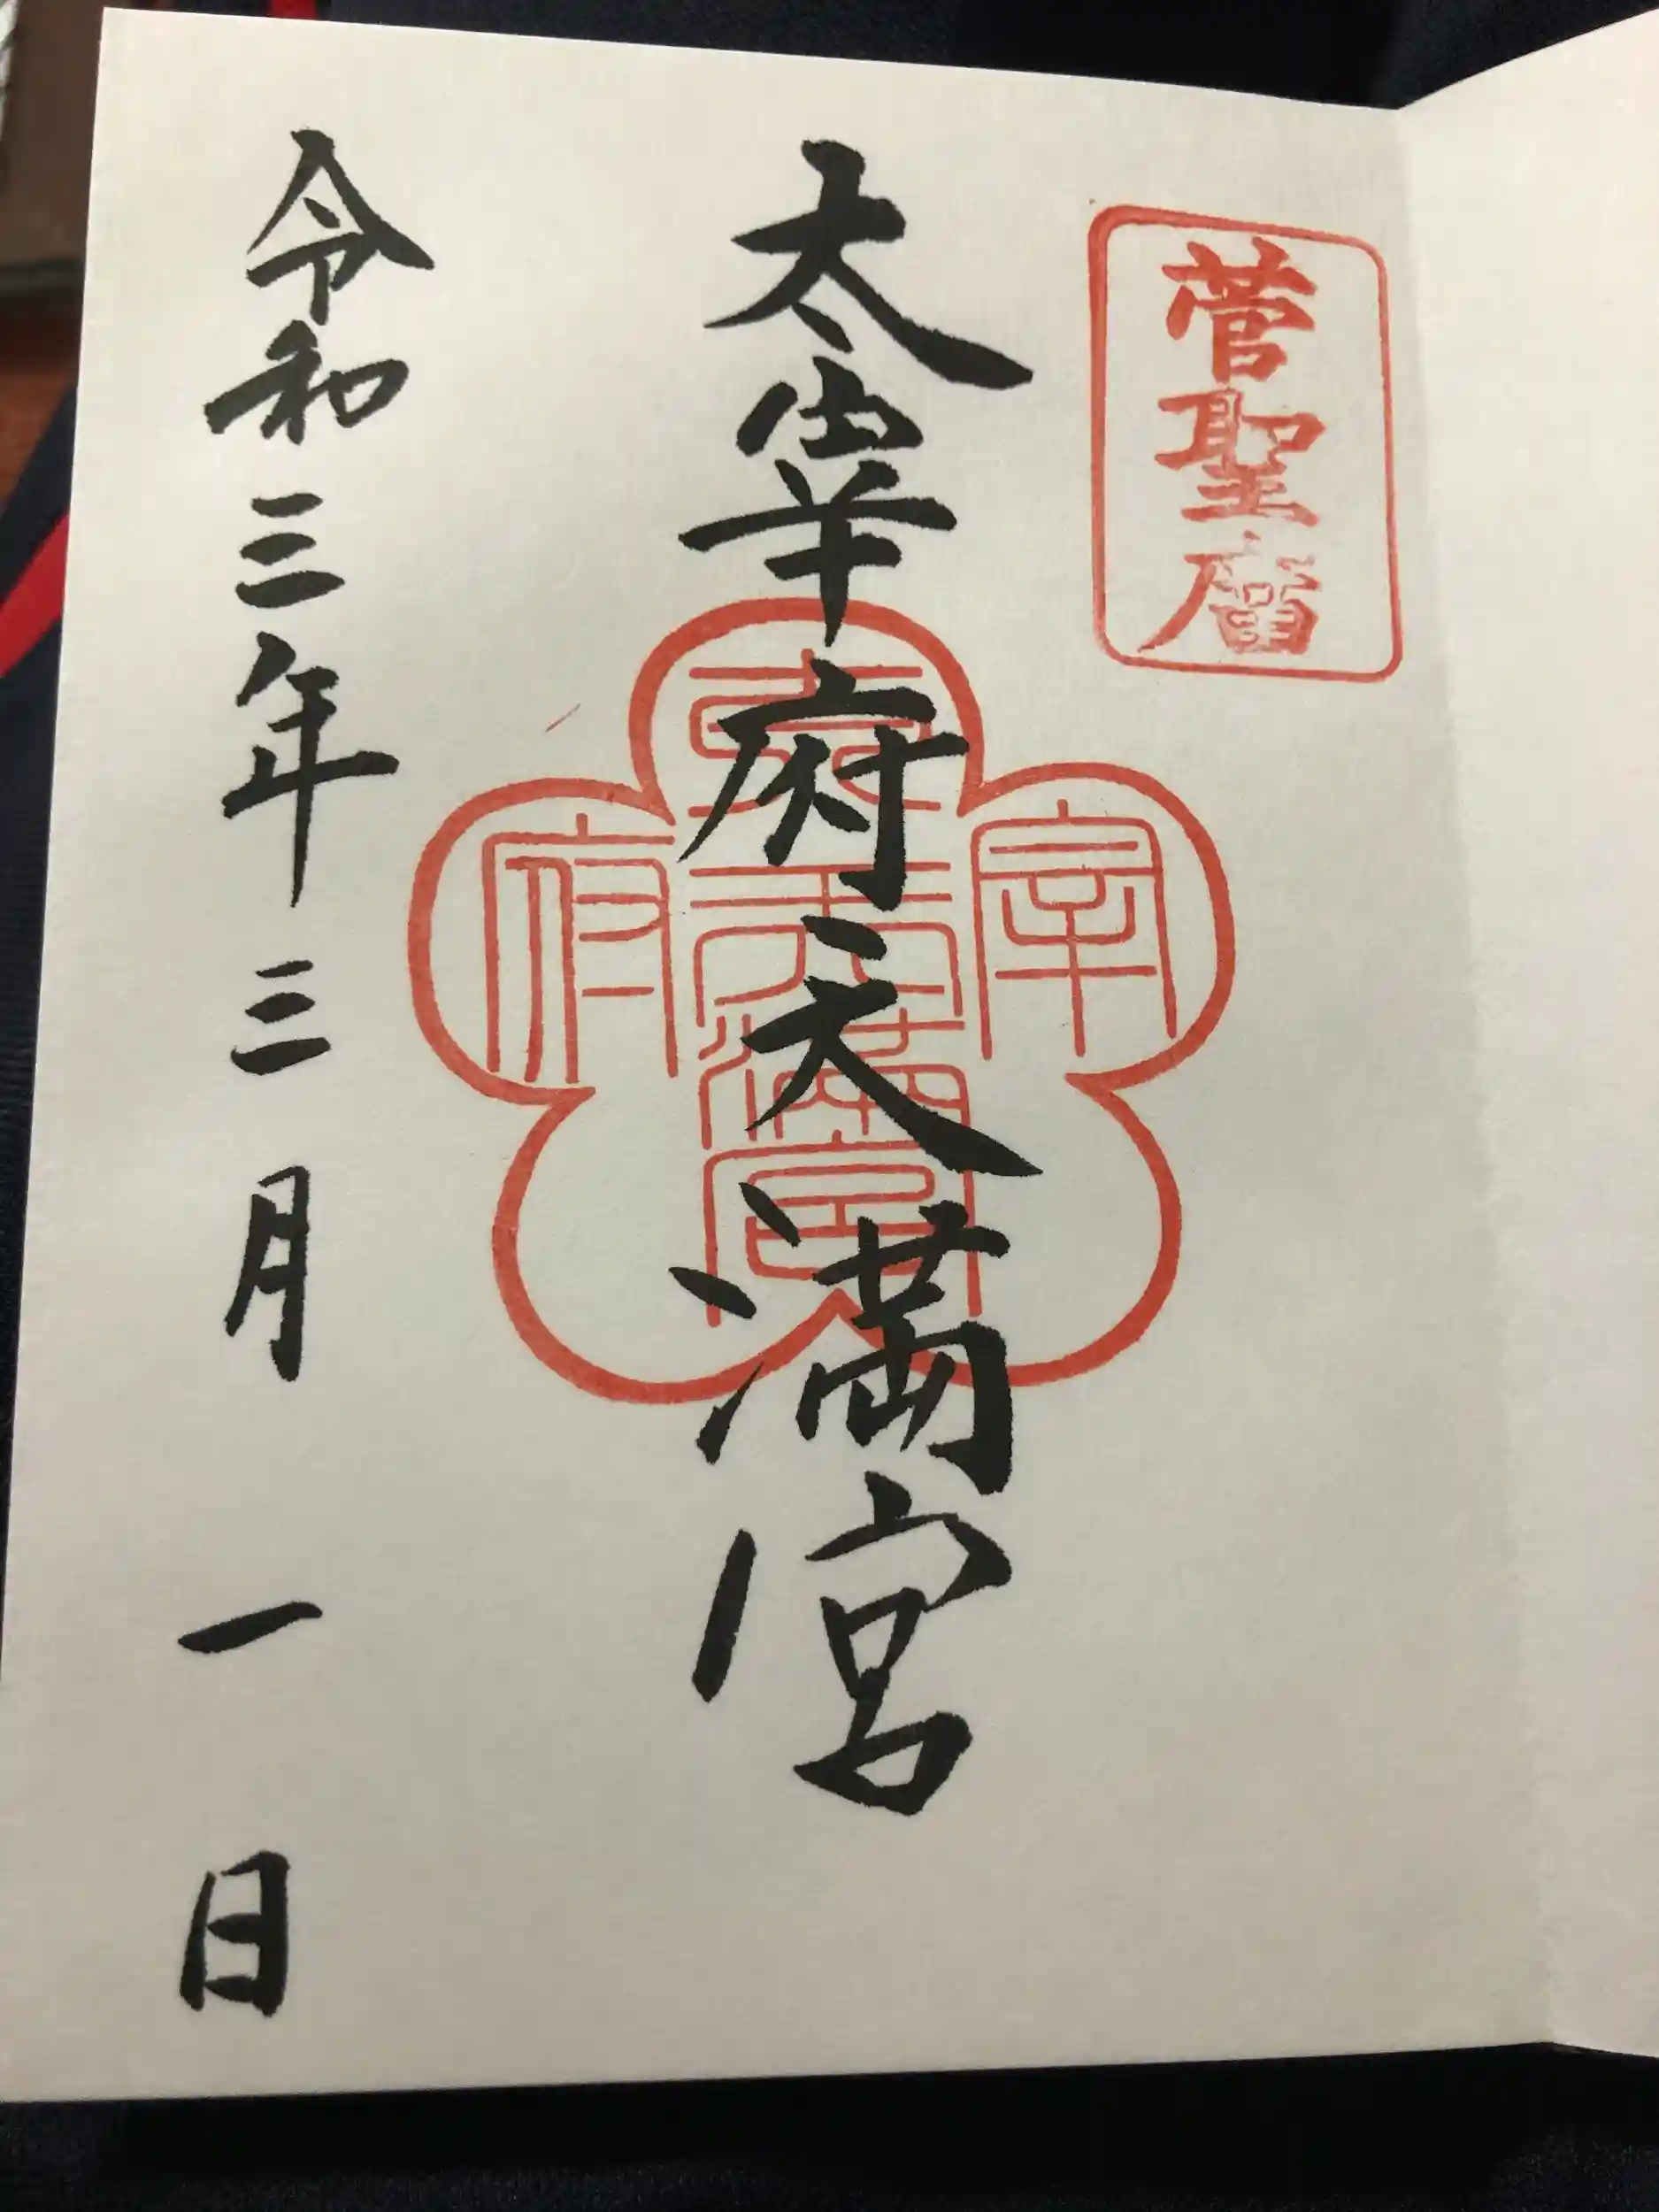 菅聖庿
太宰府天満宮
宰
府
天満宮
令和三年三月一日